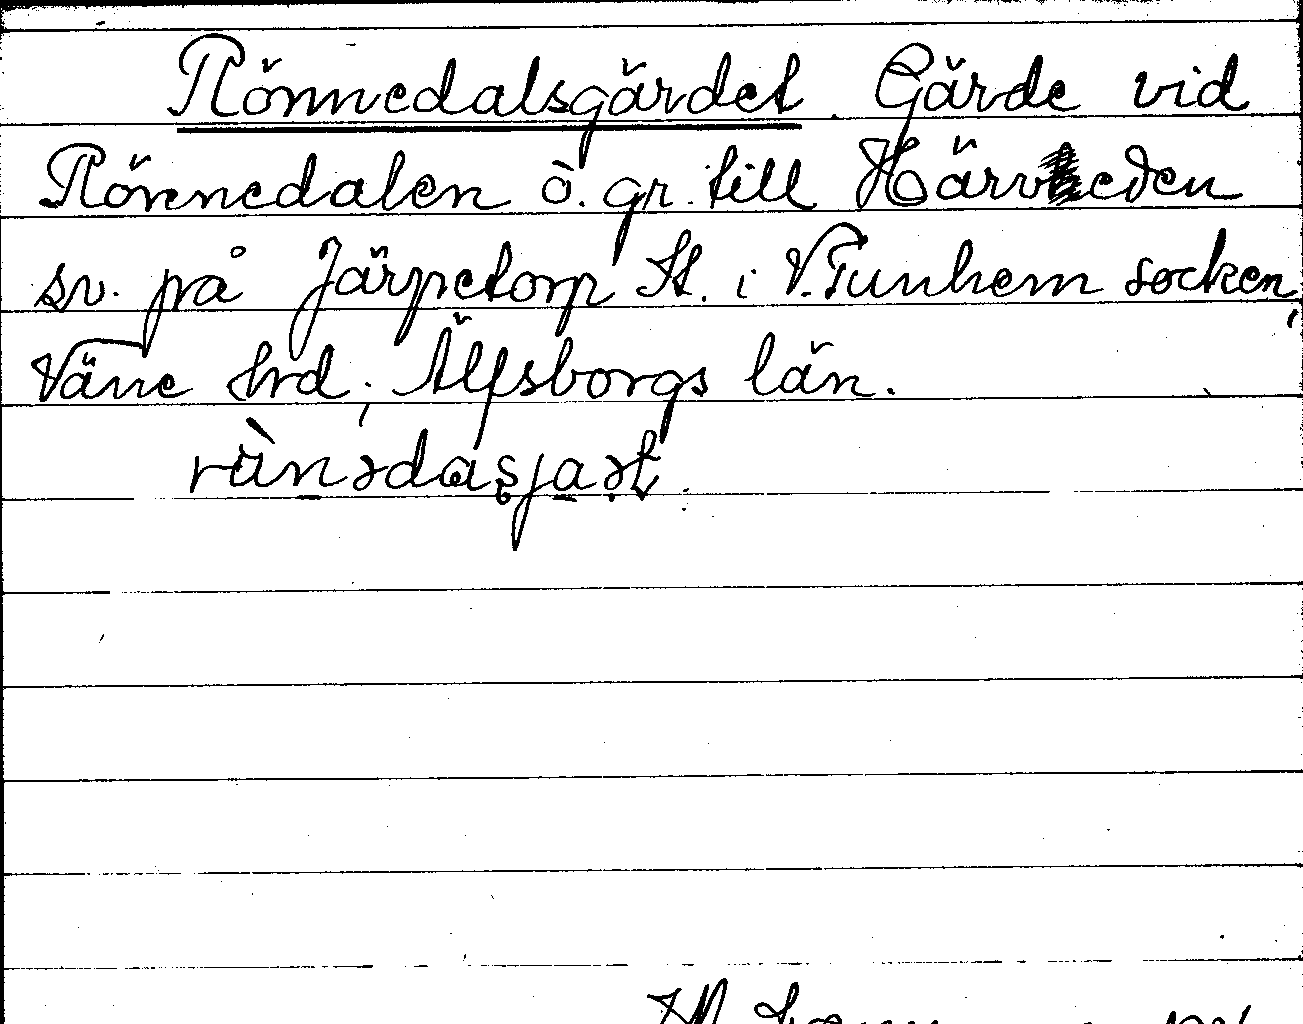 Rönnedalsgärdet. Gärde vid
Rönnedalen ö. gr. till Härveden
sv. på Järpetorp St. i V. Tunhem socken,
Väne hrd, Älfsborgs län.